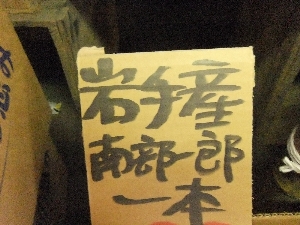 岩手産
南部一郎
一本